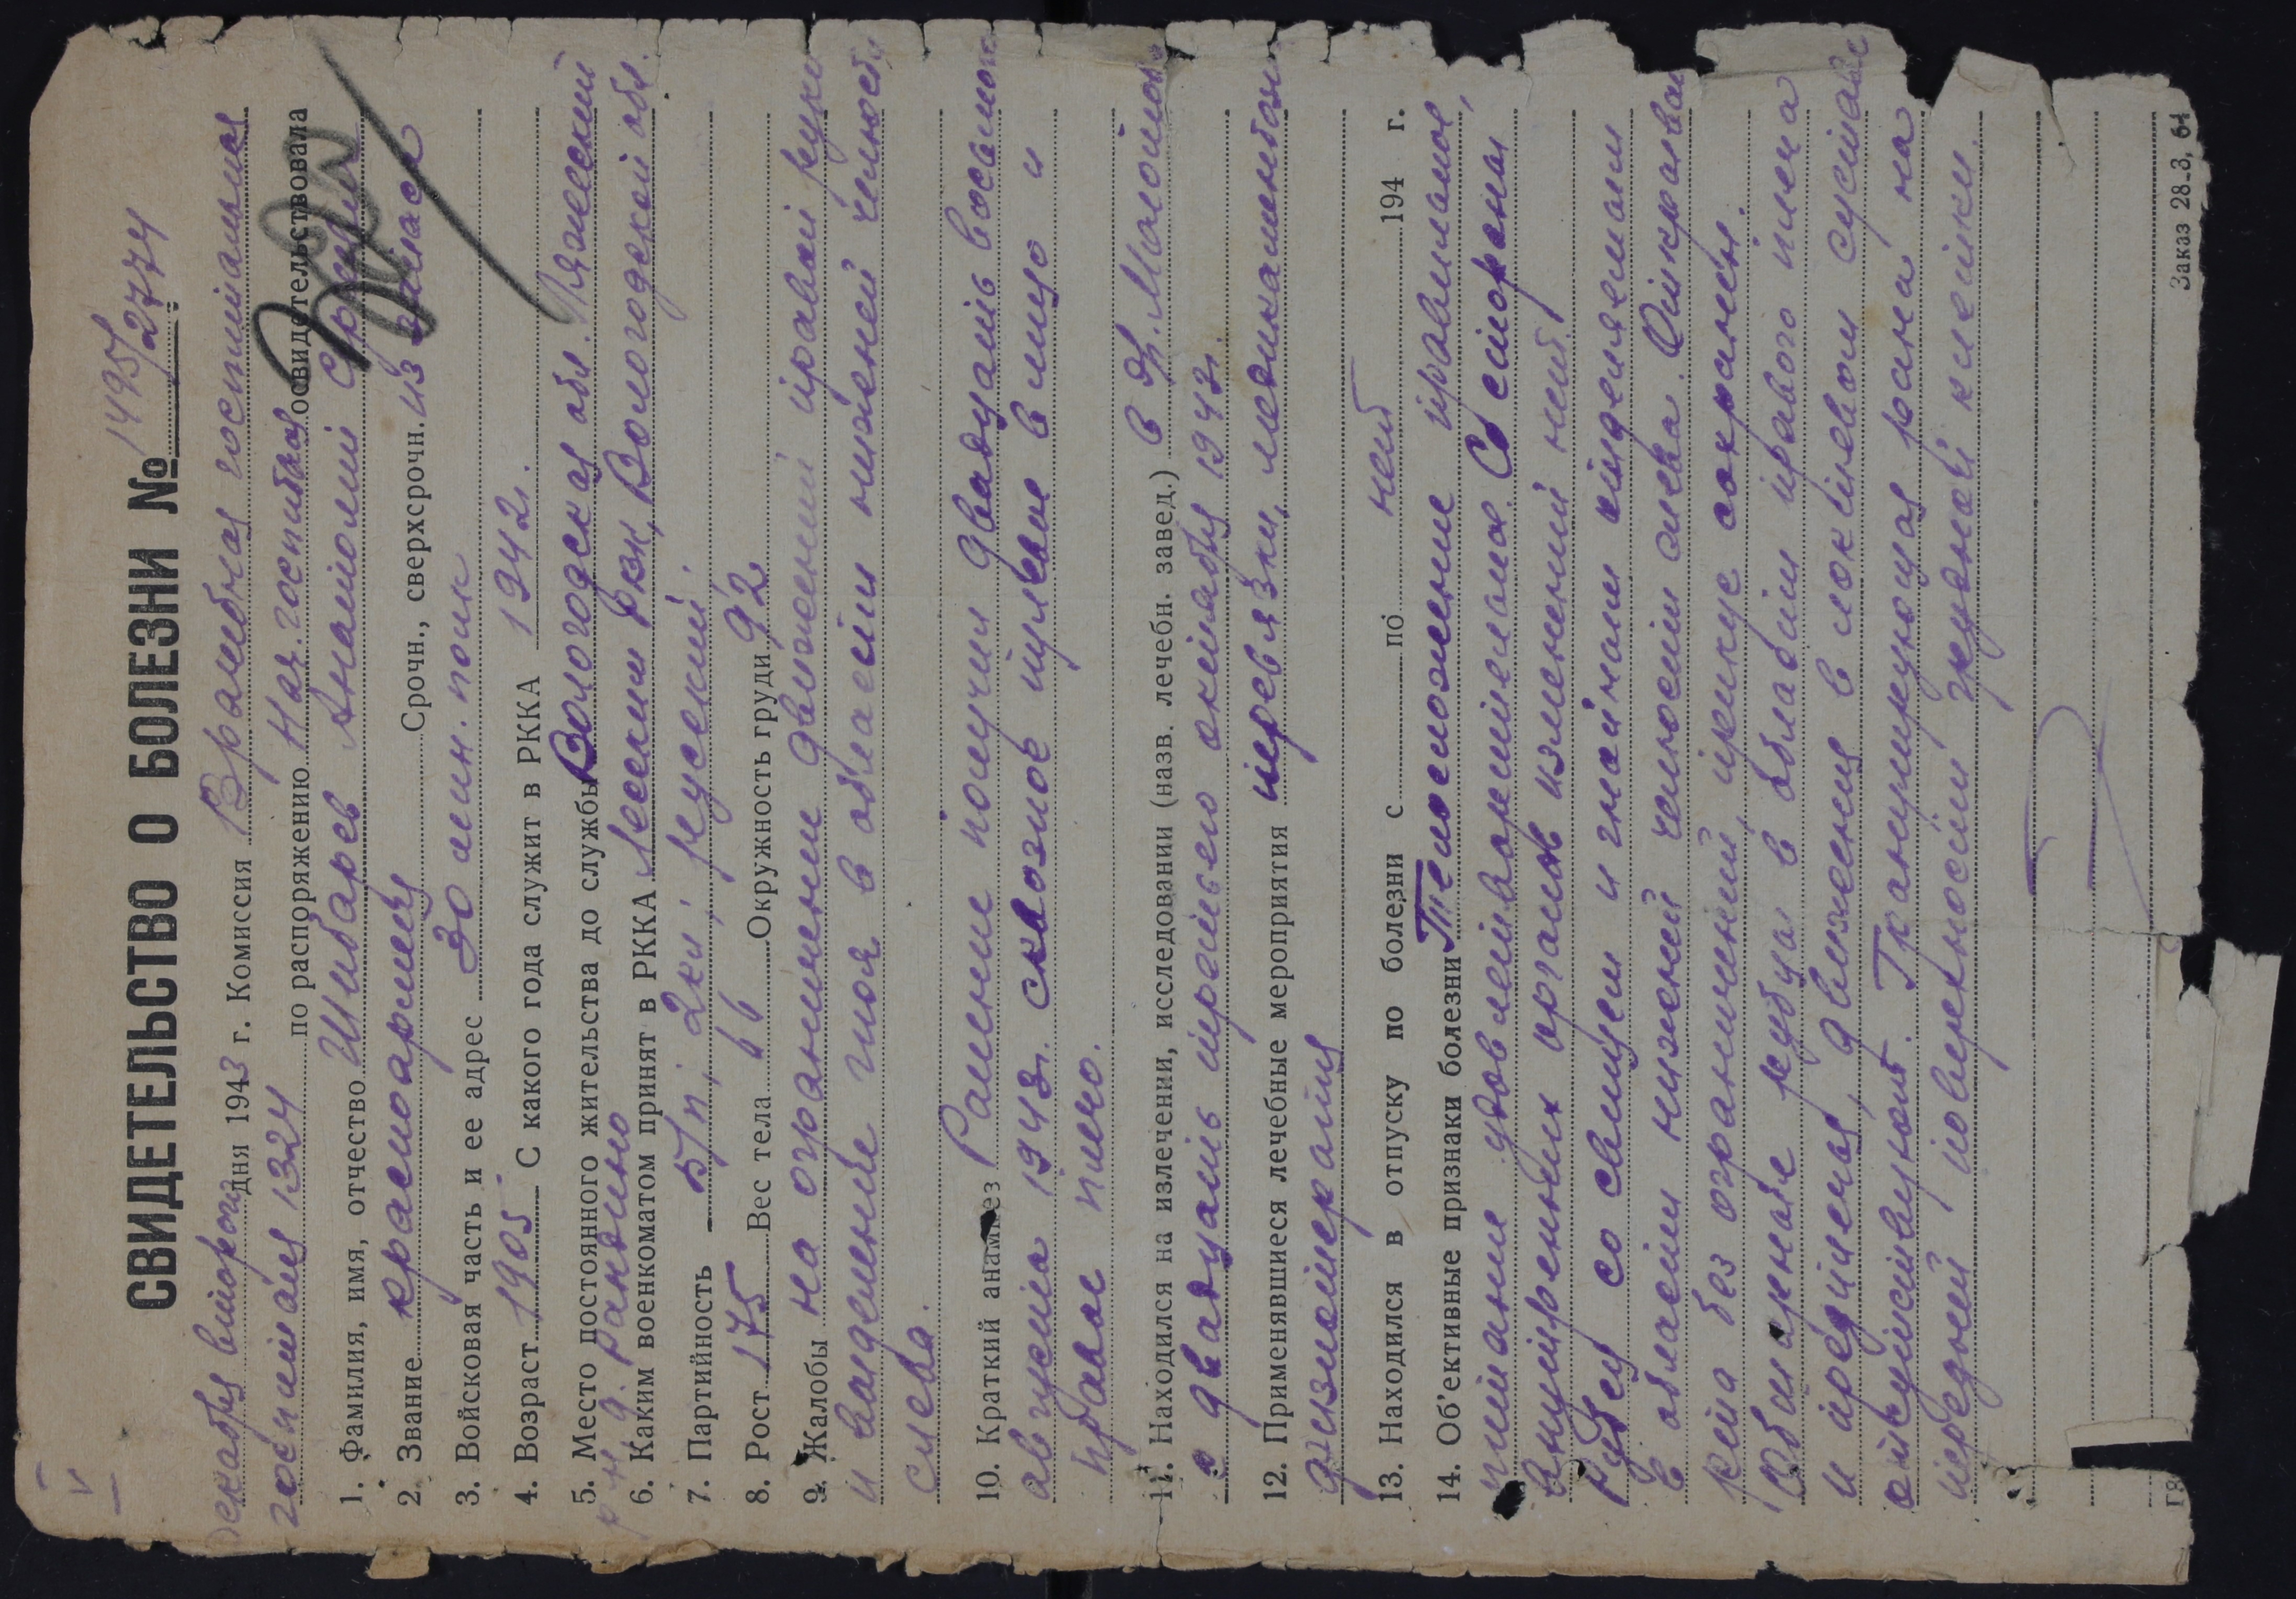 СВИДЕТЕЛЬСТВО О БОЛЕЗНИ № 1495/2774
декабря второго дня 1943 г. Комиссия Врачебная госпитальная
госпиталя 1324 по распоряжению Нач. госпиталя освидетельствовала
1. Фамилия, имя, отчество Шибарев Анатолий
2. Звание красноармеец Срочн., сверхсрочн. из запаса
3. Войсковая часть и ее адрес 30 полк
4. Возраст 1905 С какого года служит в РККА 1942г.
5. Место постоянного жительства до службы Вологодская обл.
р-н д.
6. Каким военкоматом принят в РККА РВК, Вологодской обл.
7. Партийность б/п, 2кл, русский.
8. Рост 175 Вес тела 66 Окружность груди 92
9. Жалобы на ограничение движений правой руки
и выделение гноя в области нижней челюсти
слева.
10. Краткий анамнез Ранение получил двадцать восьмого
августа 1943г. сквозное пулевое в лицо и
правое плечо.
11. Находился на излечении, исследовании (назв. лечебн. завед.) в
с двадцать третьего октября 1943г.
12. Применявшиеся лечебные мероприятия перевязки,
физиотерапия
13. Находился в отпуску по болезни с по нет 194 г.
14. Об'ективные признаки болезни Телосложение правильное,
питание удовлетворительное. Со стороны
внутренних органов изменений нет.
Рубец со свищем и гнойным отделяемым
в области нижней челюсти слева. Открывание
рта без ограничений, прикус сохранен.
Обширные рубцы в области правого плеча
и предплечья, движения в локтевом суставе
отсутствуют. Гранулирующая рана на
передней поверхности
Заказ 28-3, 61